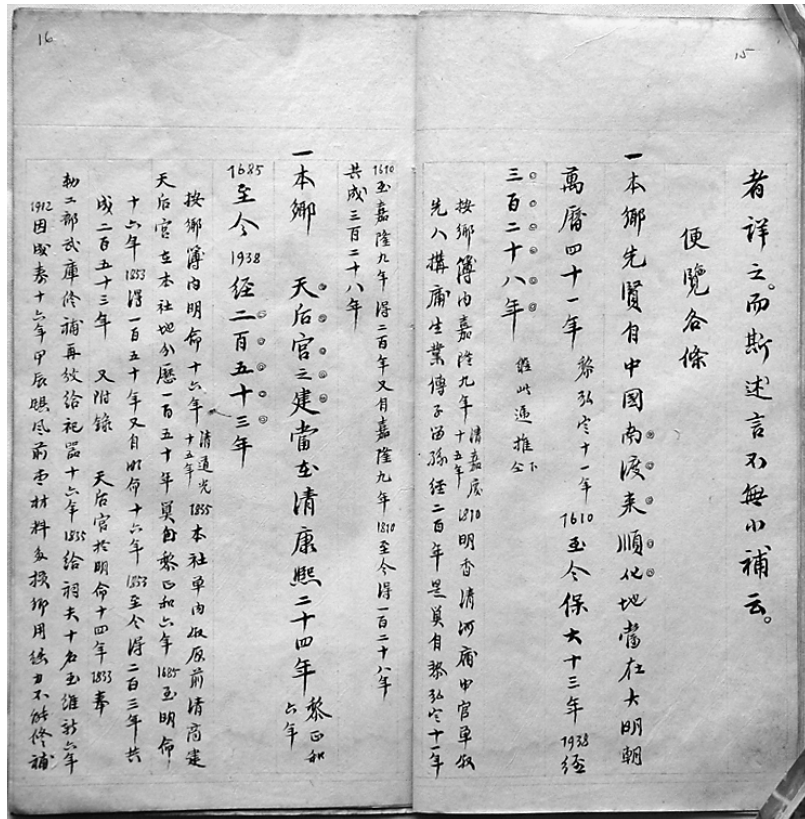 15
者詳之。而斯述言不無小補云。
便覽各條
一本鄉先賢自中國南渡来順化地當在大明朝
萬曆四十一年 黎弘定十一年 1610 至今保大十三年 1938 経
三百二十八年 經此遞推仝下
按鄉簿內嘉隆九年 清嘉慶十五年 1810 明香清河庸甲官單叙
先人搆庸生業傳子留孫経二百年是奠自黎弘定十一年
1610 至嘉隆九年得二百年又自嘉隆九年 1810 至今得一百二十八年
共成三百二十八年
16
一本鄉 天后宮之建當在清康熙二十四年 黎正和六年
1685 至今 1938 経二百五十三年
按鄉簿內明命十六年 清道光十五年 1835 本社單內叙原前清商建
天后宮在本社地分歷一百五十年奠自黎正和六年 1685 至明命
十六年 1853 得一百五十年又自明命十六年 1853 至今得二百三年共
成二百五十三年 又附錄 天后宮於明命十四年 1833 奉
勅工部武庫修補再發給祀器十六年 1835 給祠夫十名至維新六年
1912 因成泰十六年甲辰颶風前堂材料多損鄉用綿力不能修補